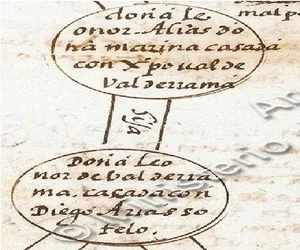 doña le
onor Alias do
ña marina casada
con Xpoual de
Valderrama
mal p
Hija
Doña Leo
nor de Valderra
ma. casada con
Diego Arias so
telo.
Ministerio